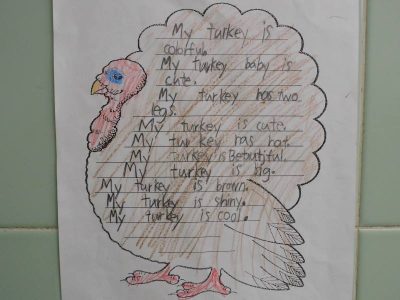 My turkey is
colorful.
My turkey baby is
cute.
My turkey has two
legs.
My turkey is cute.
My turkey has hat.
My turkey is Beautiful.
My turkey is big.
My turkey is brown.
My turkey is shiny.
My turkey is cool.